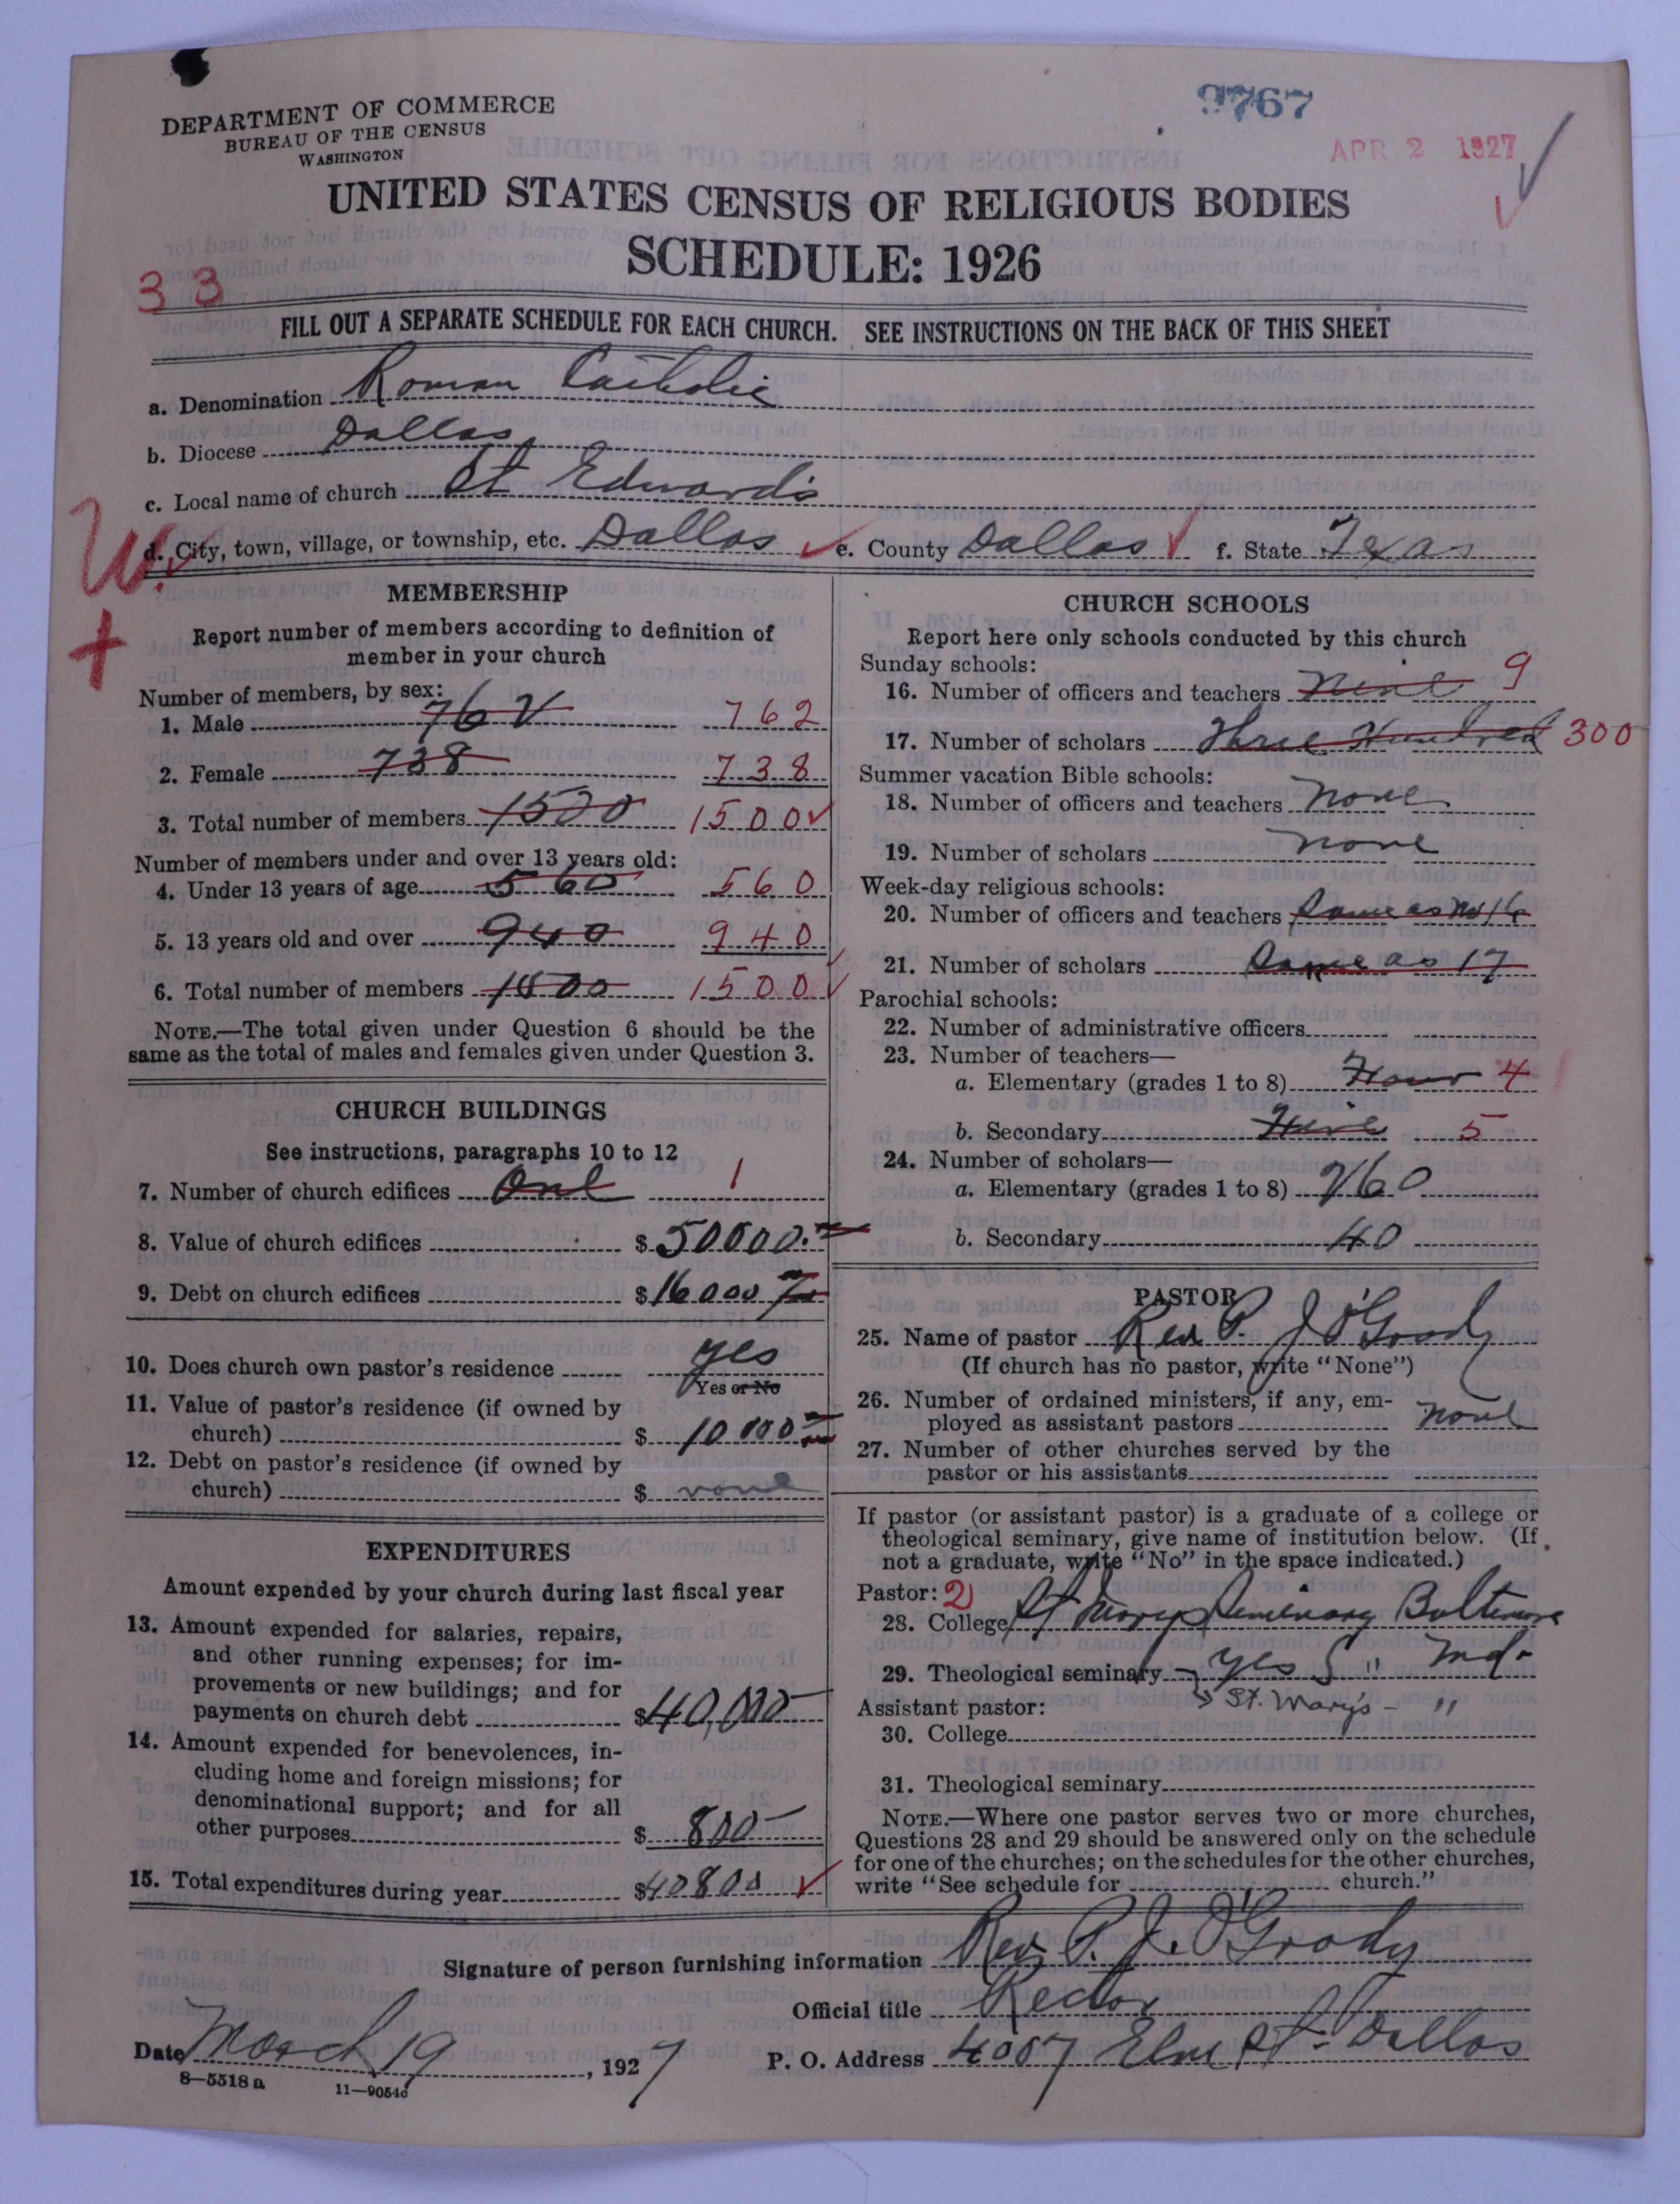 9767
APR 2 1927
DEPARTMENT OF COMMERCE
BUREAU OF THE CENSUS
WASHINGTON
UNITED STATES CENSUS OF RELIGIOUS BODIES
SCHEDULE: 1926
33
FILL OUT A SEPARATE SCHEDULE FOR EACH CHURCH. SEE INSTRUCTIONS ON THE BACK OF THIS SHEET
a. Denomination Roman Catholic
b. Diocese Dallas,
c. Local name of church St Edward's
W.
d. City, town, village, or township, etc. Dallas e. County Dallas f. State Texas
+
MEMBERSHIP
Report number of members according to definition of
member in your church
Number of members, by sex:
1. Male 762 762
2. Female 738 738
3. Total number of members 1500 1500
Number of members under and over 13 years old:
4. Under 13 years of age 560 560
5. 13 years old and over 940 940
6. Total number of members 1500 1500
NOTE.—The total given under Question 6 should be the
same as the total of males and females given under Question 3.
CHURCH BUILDINGS
See instructions, paragraphs 10 to 12
7. Number of church edifices One 1
8. Value of church edifices $50000.
9. Debt on church edifices $16000
10. Does church own pastor's residence yes
Yes or No
11. Value of pastor's residence (if owned by
church) $ 10000
12. Debt on pastor's residence (if owned by
church) $ none
EXPENDITURES
Amount expended by your church during last fiscal year
13. Amount expended for salaries, repairs,
and other running expenses; for im-
provements or new buildings; and for
payments on church debt $40,000
14. Amount expended for benevolences, in-
cluding home and foreign missions; for
denominational support; and for all
other purposes $ 800
15. Total expenditures during year $40800
CHURCH SCHOOLS
Report here only schools conducted by this church
Sunday schools:
16. Number of officers and teachers Nine 9
17. Number of scholars Three Hundred 300
Summer vacation Bible schools:
18. Number of officers and teachers none
19. Number of scholars none
Week-day religious schools:
20. Number of officers and teachers Same as No 16
21. Number of scholars Same as 17
Parochial schools:
22. Number of administrative officers
23. Number of teachers—
a. Elementary (grades 1 to 8) Four 4
b. Secondary Five 5
24. Number of scholars—
a. Elementary (grades 1 to 8) 260
b. Secondary 40
PASTOR
25. Name of pastor Rev P. J O'Grady
(If church has no pastor, write "None")
26. Number of ordained ministers, if any, em-
ployed as assistant pastors none
27. Number of other churches served by the
pastor or his assistants
If pastor (or assistant pastor) is a graduate of a college or
theological seminary, give name of institution below. (If
not a graduate, write "No" in the space indicated.)
Pastor: 2
28. College St Mary's Seminary Baltimore
29. Theological seminary yes " Md.
Assistant pastor: St. Mary's - "
30. College
31. Theological seminary
NOTE.—Where one pastor serves two or more churches,
Questions 28 and 29 should be answered only on the schedule
for one of the churches; on the schedules for the other churches,
write "See schedule for church."
Signature of person furnishing information Rev. P. J. O'Grady
Official title Rector
Date March 19, 1927 P. O. Address 4007 Elm St. Dallas
8—5518 a 11—9054c